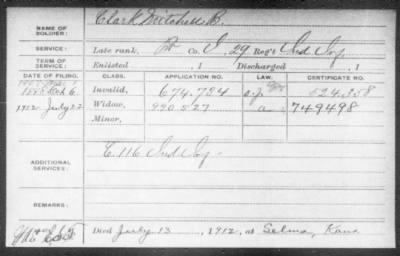 NAME OF SOLDIER: Clark Mitchell B.
SERVICE: Late rank, Pt Co. I, 29 Reg't Ind Inf.
TERM OF SERVICE: Enlisted , 1 Discharged , 1
DATE OF FILING. CLASS. APPLICATION NO. LAW. CERTIFICATE NO.
Invalid, 674.724 524.358
1912 July 22 Widow, 990.527 a 749498
Minor,
ADDITIONAL SERVICES: E. 116 Ind Inf.
REMARKS:
Died July 13, 1912, at Selma, Kans